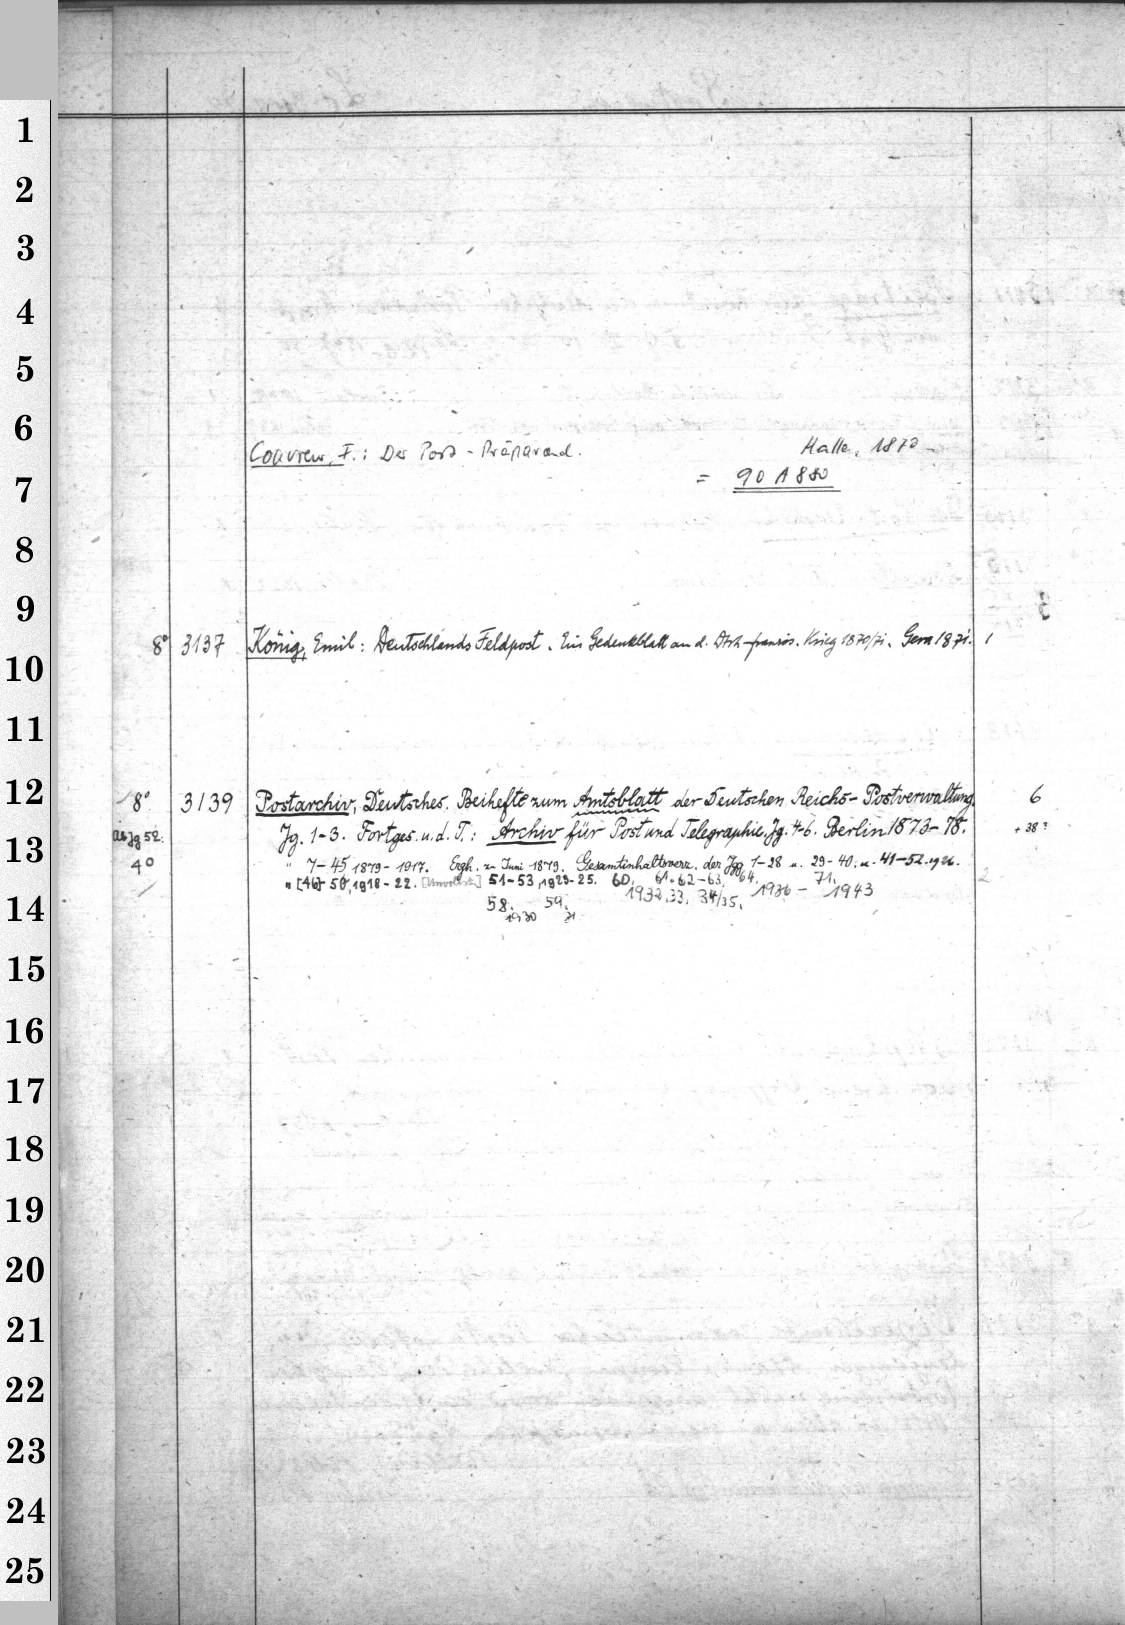 1
2
3
4
5
6
Couvreur, F.: Der Post-Präparand. Halle, 1870
= 90 A 880
7
8
9
8° 3137 König, Emil: Deutschlands Feldpost. Ein Gedenkblatt an d. Dtsch-französ. Krieg 1870/71. Gera 1871. 1
10
11
12
8° 3139 Postarchiv, Deutsches. Beihefte zum Amtsblatt der Deutschen Reichs-Postverwaltung. 6
ab Jg 52. Jg. 1-3. Fortges. u. d. T.: Archiv für Post und Telegraphie. Jg. 4-6. Berlin 1873-78. + 38?
13
4° " 7-45 1879-1917. Ergh. z. Juni 1879. Gesamtinhaltsverz. der Jgg. 1-28 u. 29-40. u. 41-52. 1926.
" [46]-50, 1918-22. [Unvollst.] 51-53, 1923-25. 60, 61. 62-63, 64. 71.
1932.33. 34/35. 1936-1943
14
58. 59.
1930 31
15
16
17
18
19
20
21
22
23
24
25